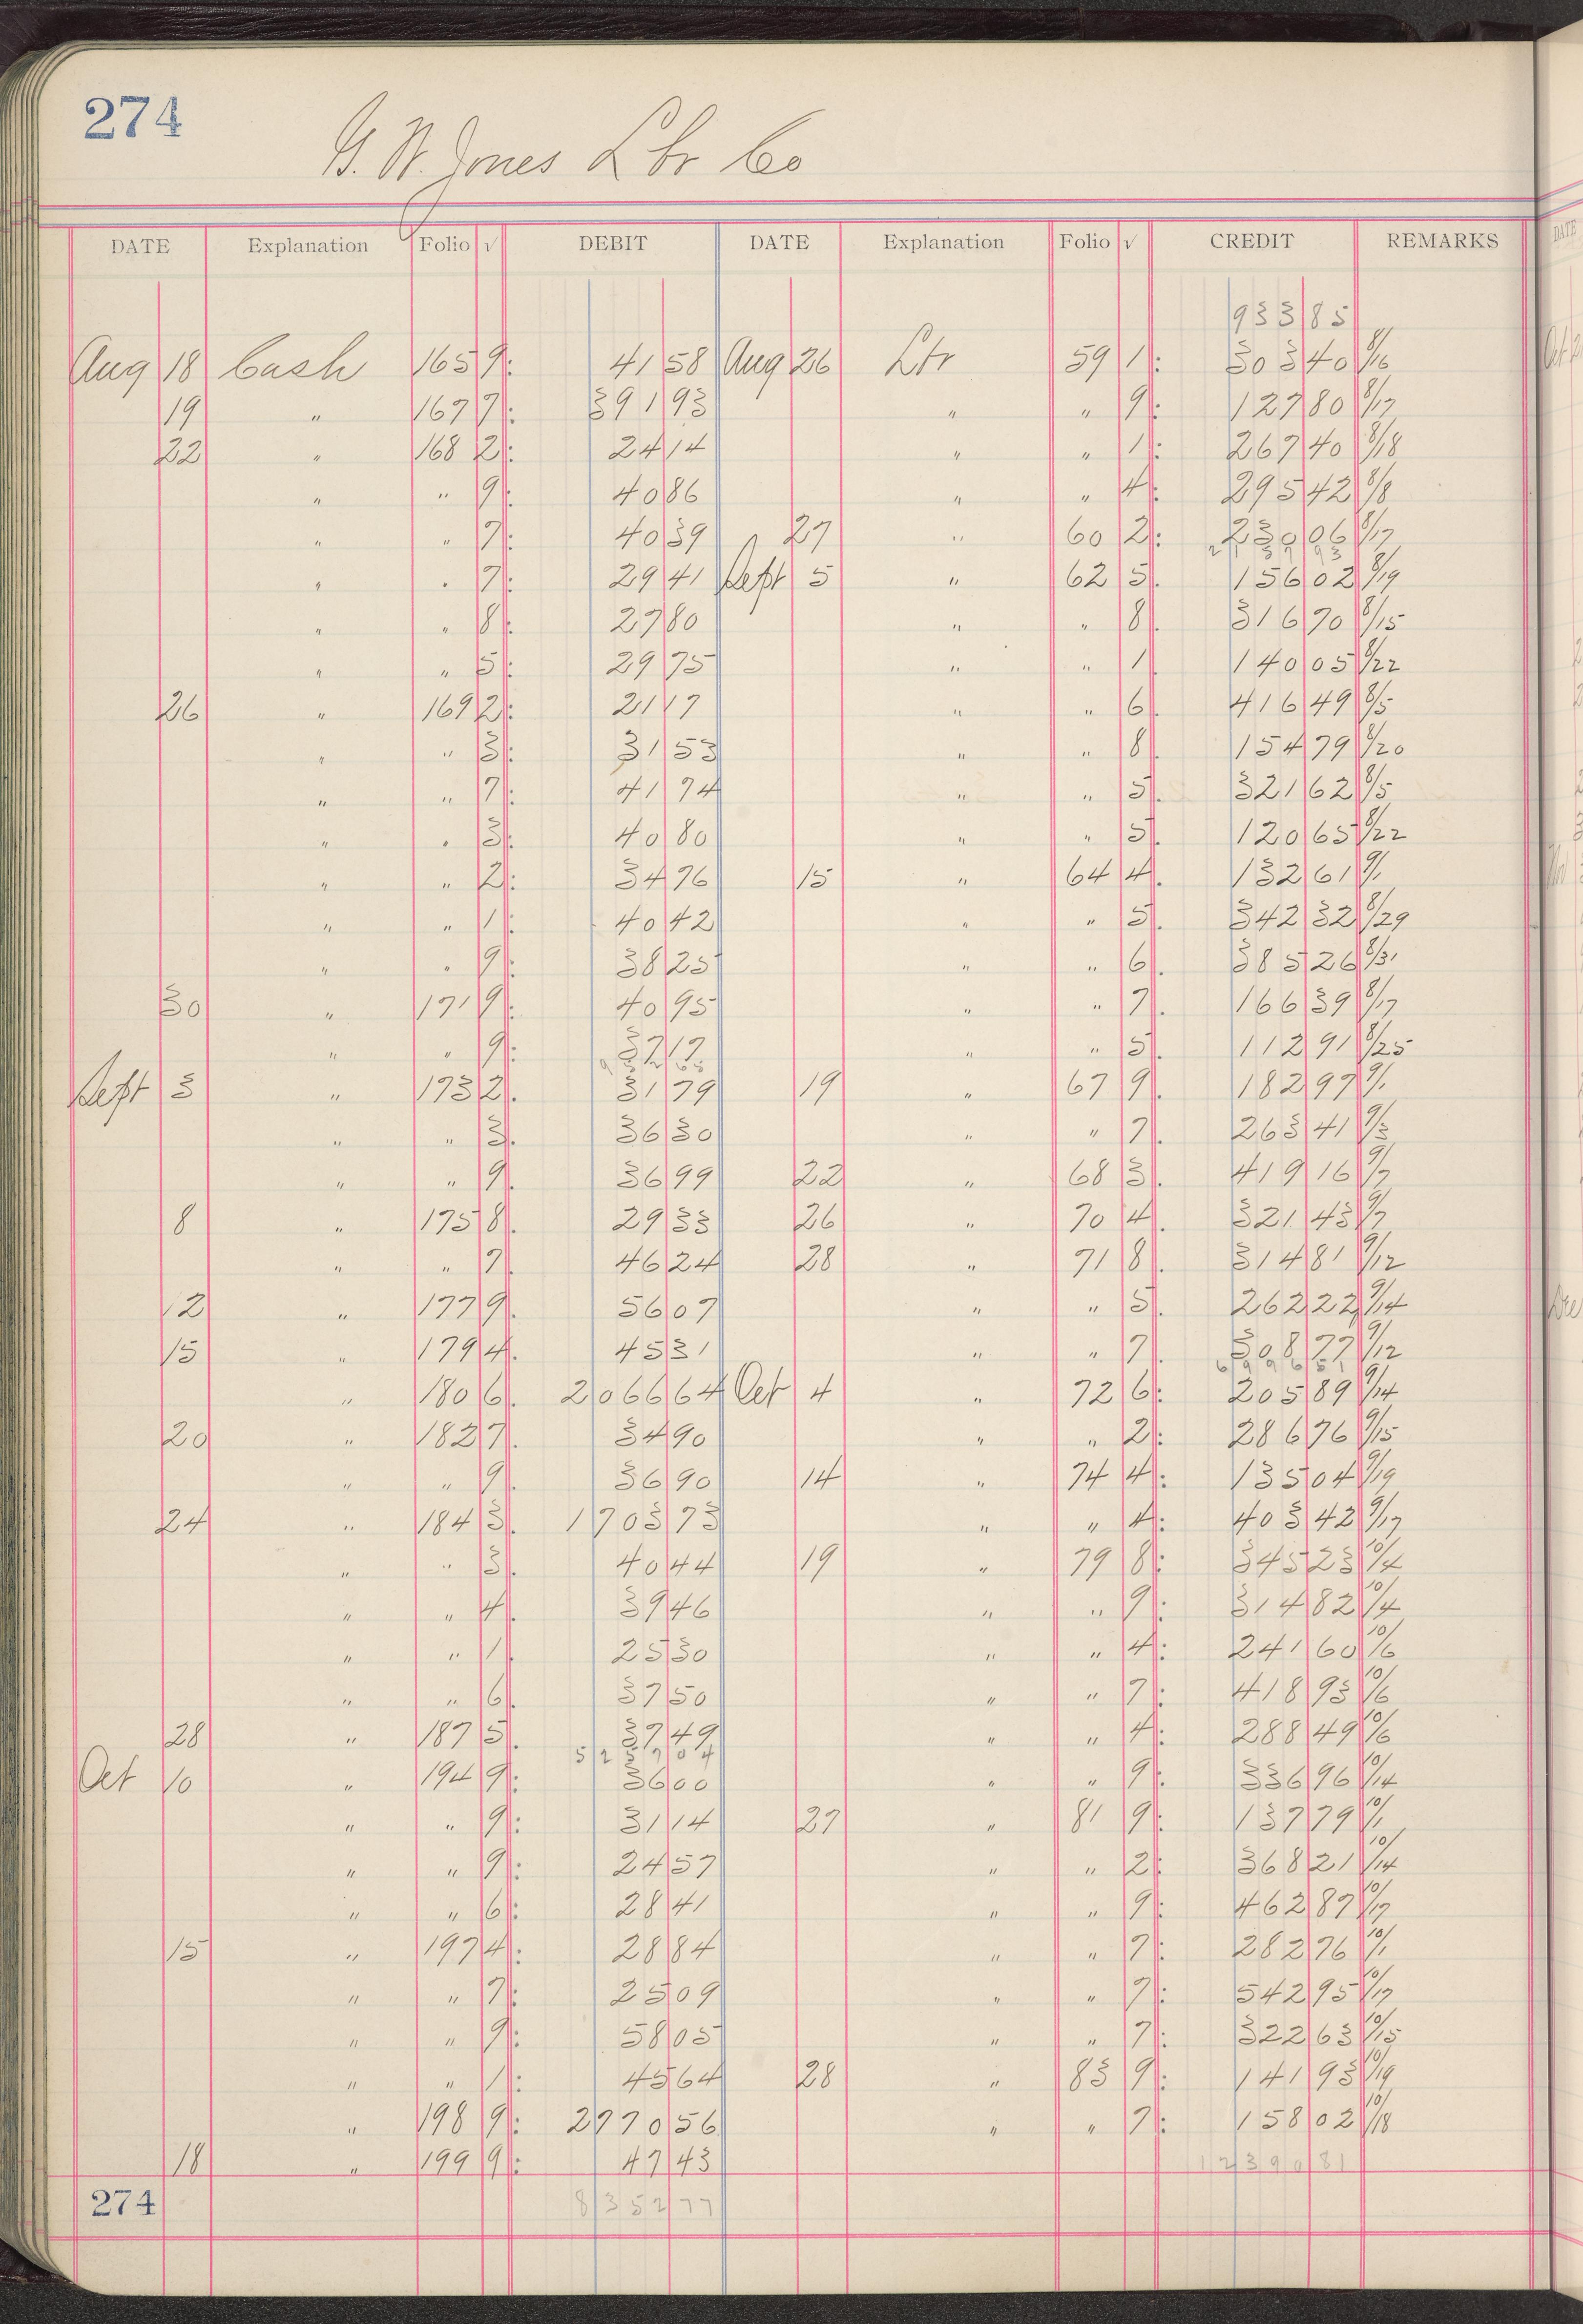 274
G. W. Jones Lbr Co
DATE Explanation Folio √ DEBIT DATE Explanation Folio √ CREDIT REMARKS
933 85
Aug 18 Cash 165 9: 41 58 Aug 26 Lbr 59 1: 303 40 8/16
19 " 167 7: 391 93 " " 9: 127 80 8/17
22 " 168 2: 24 14 " " 1: 267 40 8/18
" " 9: 40 86 " " 4: 295 42 8/8
" " 7: 40 39 27 " 60 2: 230 06 8/17
" " 7: 29 41 Sept 5 " 62 5. 156 02 8/19
" " 8: 27 80 " " 8. 316 70 8/15
" " 5: 29 75 " " 1 140 05 8/22
26 " 169 2: 21 17 " " 6. 416 49 8/5
" " 3: 31 53 " " 8. 154 79 8/20
" " 7: 41 74 " " 5. 321 62 8/5
" " 3: 40 80 " " 5. 120 65 8/22
" " 2: 34 76 15 " 64 4. 132 61 9/1
" " 1: 40 42 " " 5. 342 32 8/29
" " 9: 38 25 " " 6. 385 26 8/31
30 " 171 9: 40 95 " " 7. 166 39 8/17
" " 9: 37 17 " " 5. 112 91 8/25
Sept 3 " 173 2. 31 79 19 " 67 9. 182 97 9/1
" " 3. 36 30 " " 7. 263 41 9/3
" " 9. 36 99 22 " 68 3. 419 16 9/7
8 " 175 8. 29 33 26 " 70 4. 321 43 9/7
" " 7. 46 24 28 " 71 8. 314 81 9/12
12 " 177 9. 56 07 " " 5. 262 22 9/14
15 " 179 4. 45 31 " " 7. 308 77 9/12
" 180 6. 2066 64 Oct 4 " 72 6: 205 89 9/14
20 " 182 7. 34 90 " " 2: 286 76 9/15
" " 9. 36 90 14 " 74 4: 135 04 9/19
24 " 184 3. 1703 73 " " 4: 403 42 9/17
" " 3. 40 44 19 " 79 8: 345 23 10/4
" " 4. 39 46 " " 9: 314 82 10/4
" " 1. 25 30 " " 4: 241 60 10/6
" " 6. 37 50 " " 7: 418 93 10/6
28 " 187 5. 37 49 " " 4: 288 49 10/6
5257 04
Oct 10 " 194 9: 36 00 " " 9: 336 96 10/14
" " 9: 31 14 27 " 81 9: 137 79 10/1
" " 9: 24 57 " " 2: 368 21 10/14
" " 6: 28 41 " " 9: 462 87 10/17
15 " 197 4: 28 84 " " 7: 282 76 10/1
" " 7: 25 09 " " 7: 542 95 10/17
" " 9: 58 05 " " 7: 322 63 10/15
" " 1: 45 64 28 " 83 9: 141 93 10/19
" 198 9: 2770 56 " " 7: 158 02 10/18
18 " 199 9: 47 43 12390 81
274 8352 77